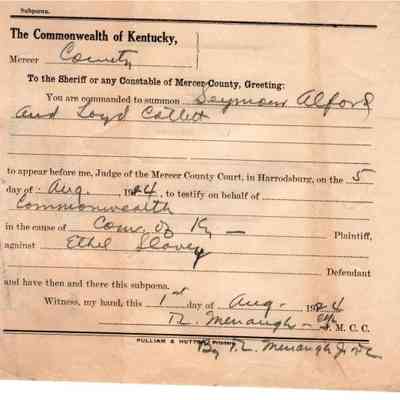 Subpoena.
The Commonwealth of Kentucky,
Mercer County
To the Sheriff or any Constable of Mercer County, Greeting:
You are commanded to summon Seymour Alford
and Loyd Catlett
to appear before me, Judge of the Mercer County Court, in Harrodsburg, on the 5
day of Aug. 1924, to testify on behalf of
Commonwealth
in the cause of Com. of Ky Plaintiff,
against Ethel Slavey
Defendant
and have then and there this subpoena.
Witness, my hand, this 1st day of Aug. 1924
T. L. Menaugh J. M. C. C.
PULLIAM &
By T. L. Menaugh Jr DC